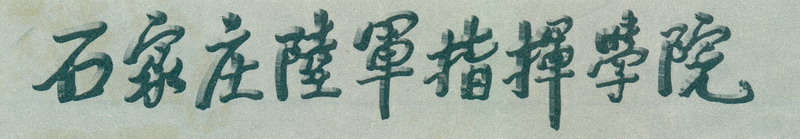 石家庄陸軍指揮學院